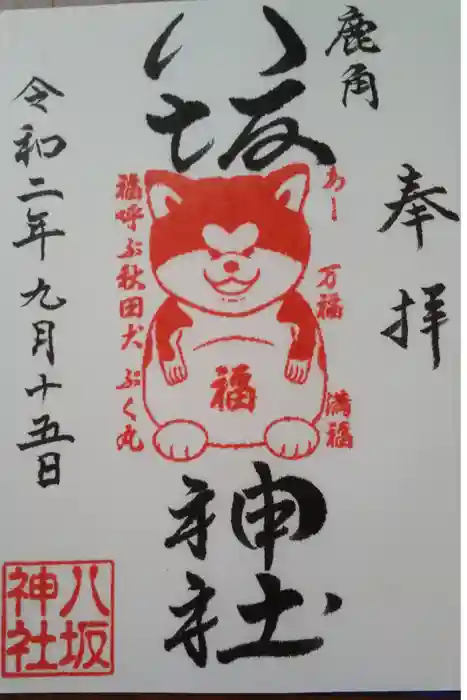 奉拝
鹿角
八坂神社
あー
万福
満福
福
福呼ぶ秋田犬ぶく丸
令和二年九月十五日
八坂
神社